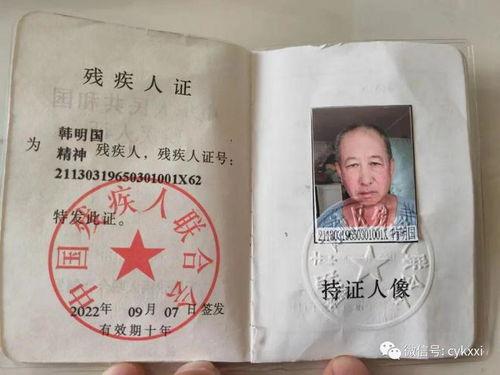 残疾人证
韩明国
为
精神 残疾人，残疾人证号：
21130319650301001X62
特发此证。
中国残疾人联合会
2022年 09月 07日签发
有效期十年
211303196503010​01X 韩明国
持证人像
微信号: cykxxi